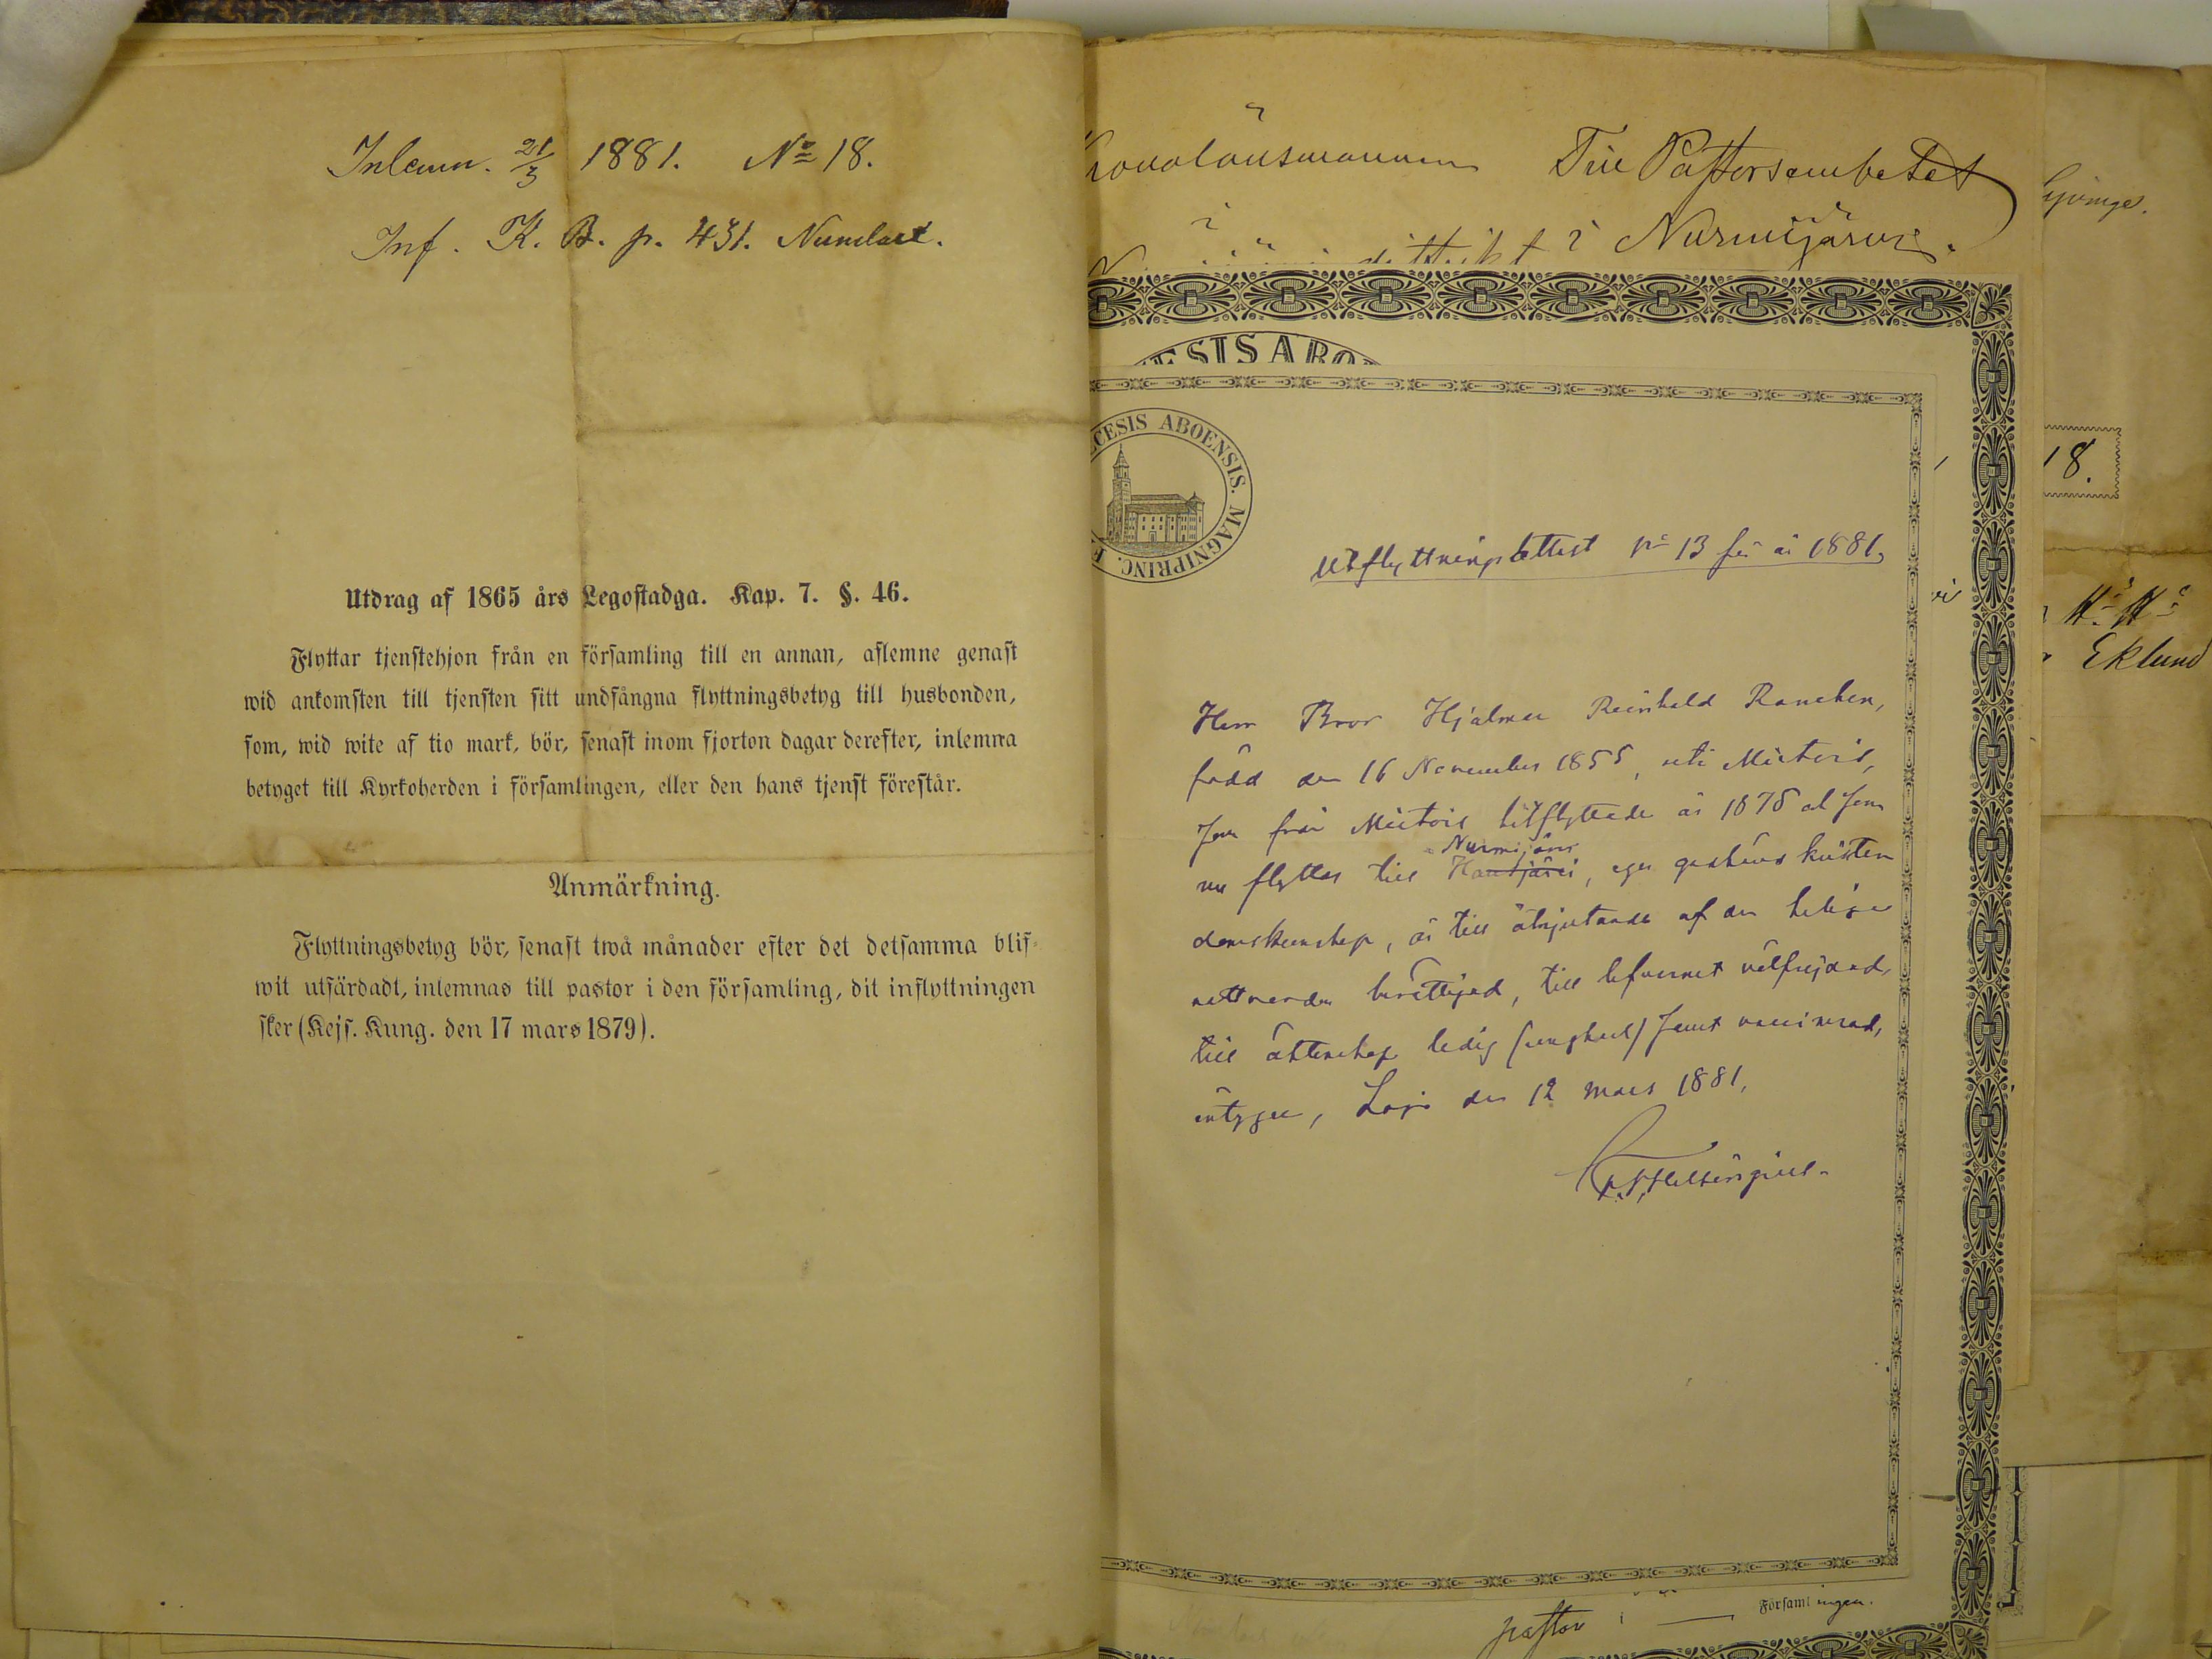 Inlemn. 21/3 1881. No 18.
Inf. K. B. p. 431. Numlax.
Utdrag af 1865 års Legostadga. Kap. 7. §. 46.
Flyttar tjenstehjon från en församling till en annan, aflemne genast
wid ankomsten till tjensten sitt undfångna flyttningsbetyg till husbonden,
som, wid wite af tio mark, bör, senast inom fjorton dagar derefter, inlemna
betyget till Kyrkoherden i församlingen, eller den hans tjenst förestår.
Anmärkning.
Flyttningsbetyg bör, senast twå månader efter det detsamma blif-
wit utfärdadt, inlemnas till pastor i den församling, dit inflyttningen
sker (Kejs. Kung. den 17 mars 1879).
Till Pastorsembetet
i Nurmijärvi.
ESIS ABO
CESIS ABOENSIS. MAGNI PRINC. F
Utflyttningsattest No 13 för år 1881,
Herr Bror Hjalmar Reinhold
född den 16 November 1855, uti
som från hitflyttade år 1878 och som
Nurmijärvi
nu flyttar till Hausjärvi, eger
domskunskap, är till åtnjutande af den heliga
nattvarden berättigad, till lefvernet välfrejdad,
till äktenskap ledig (ungkarl) samt vaccinerad,
intygar, Lojo den 12 mars 1881.
pastor i Församlingen.
18.
Eklund